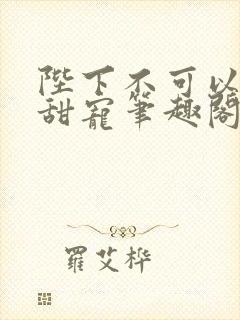 陛下不可以
甜寵筆趣閣
羅艾桦